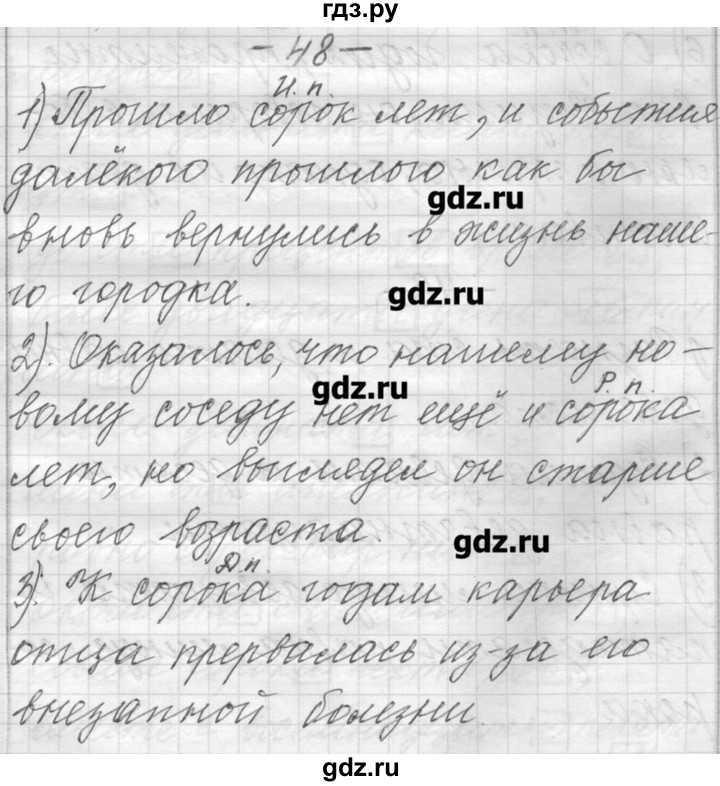 гдз.ру
- 48 -
И. п.
1) Прошло сорок лет, и события
далёкого прошлого как бы
gdz.ru
вновь вернулись в жизнь наше-
го городка.
gdz.ru
2). Оказалось, что нашему но-
gdz.ru
Р. п.
вому соседу нет ещё и сорока
лет, но выглядел он старше
своего возраста.
gdz.ru
Д п.
3). К сорока годам карьера
отца прервалась из-за его
внезапной болезни.
gdz.ru